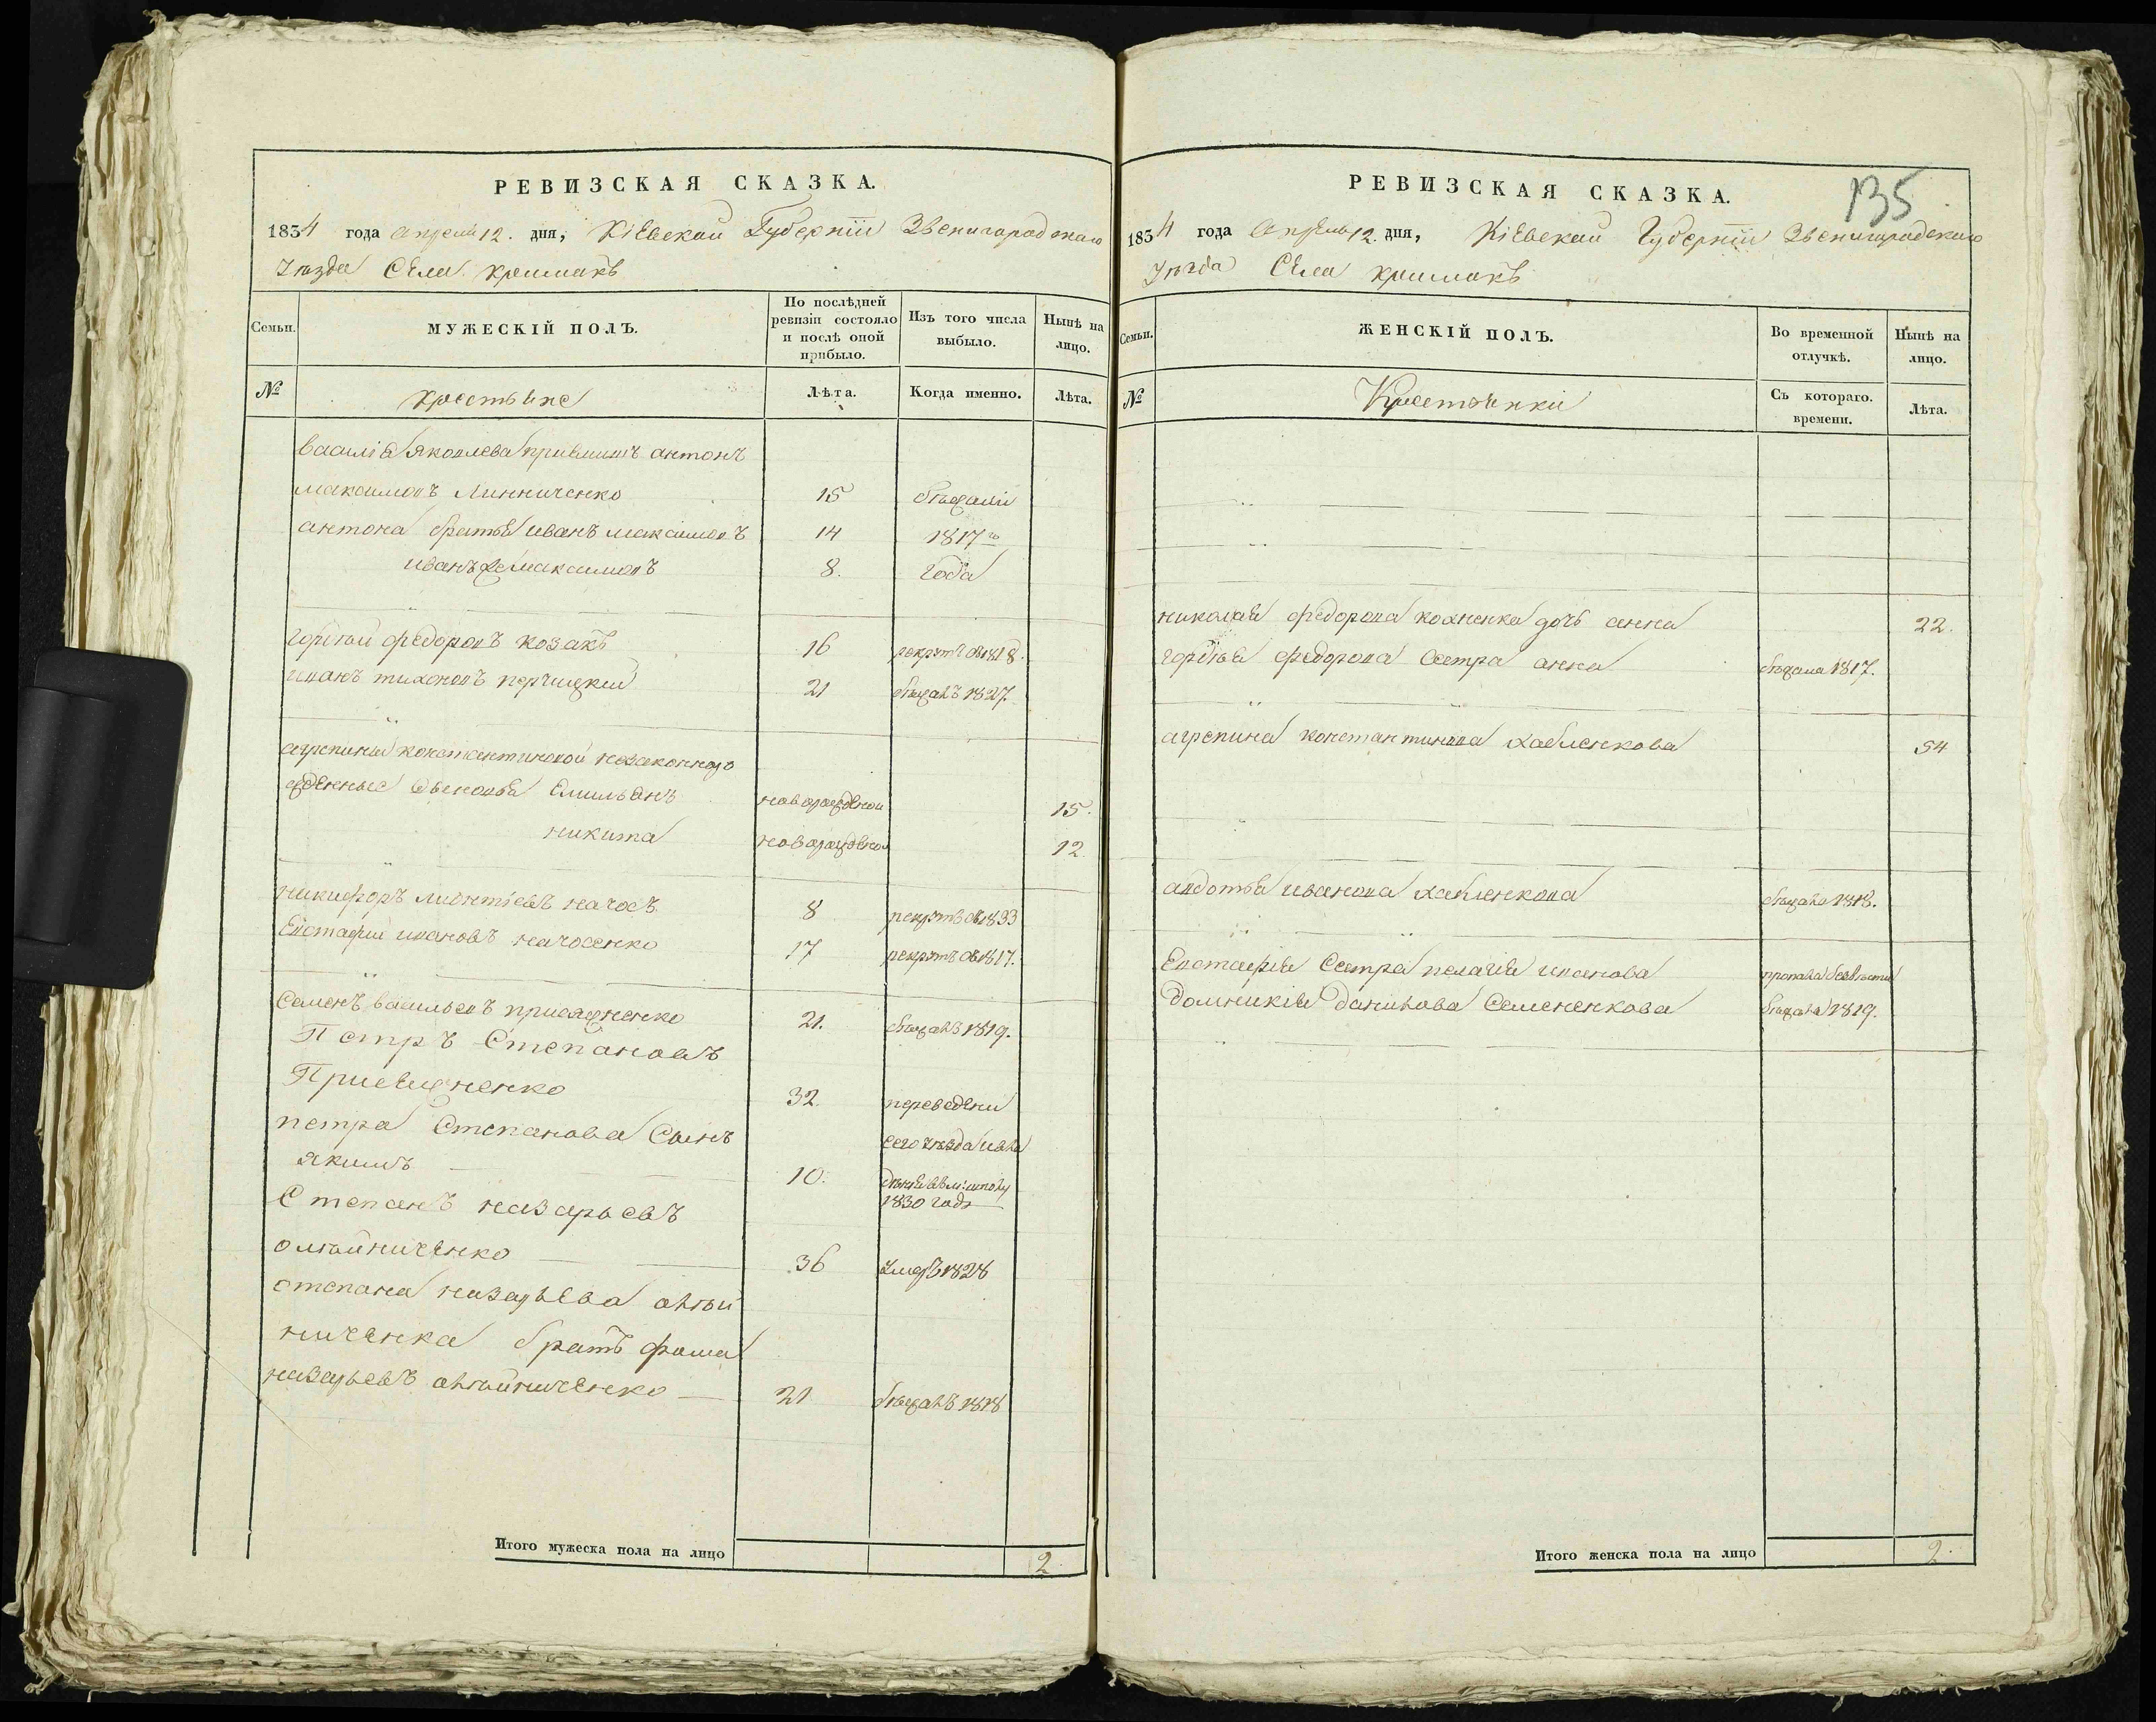 РЕВИЗСКАЯ СКАЗКА.
1834 года апреля 12. дня, Кіевской Губерніи Звенигородскаго
Уѣзда Села
Семьи.
МУЖЕСКІЙ ПОЛЪ.
По послѣдней ревизіи состояло и послѣ оной прибыло.
Изъ того числа выбыло.
Нынѣ на лицо.
№
крестьяне
Лѣта.
Когда именно.
Лѣта.
василія Яковлева антонъ
максимовъ Линниченко 15 бѣжали
антона братья иванъ максимовъ 14 1817го
иванъ же максимовъ 8. года
федоровъ козакъ 16 рекрутъ въ 1818.
иванъ тихоновъ 21 бѣжалъ 1827.
агрепины константиновой незаконноро
жденные сыновья Емильянъ новорожденой 15.
никита новорожденой 12.
никифоръ начосъ 8 рекрутъ въ 1833
Евстафій ивановъ начосенко 17 рекрутъ въ 1817.
Семенъ васильевъ присяженко 21. бѣжалъ 1819.
Петръ Степановъ
32. переведены
петра Степанова Сынъ сего уѣзда
якимъ 10.
1830 года
Степанъ назарьевъ
олѣйниченко 36 умеръ 1828
степана назарьева олѣй
ниченка братъ фома
назарьевъ олѣйниченко 21 бѣжалъ 1818
Итого мужеска пола на лицо 2.
135
РЕВИЗСКАЯ СКАЗКА.
1834 года апреля 12. дня, Кіевской Губерніи Звенигородскаго
Уѣзда Села
Семьи.
ЖЕНСКІЙ ПОЛЪ.
Во временной отлучкѣ.
Нынѣ на лицо.
№
Крестянки
Съ котораго. времени.
Лѣта.
николая федорова дочь анна 22.
федорова сестра анна бѣжала 1817.
агрепина константинова хавленкова 54
авдотья иванова хавленкова бѣжала 1818.
Евстафія Сестра пелагія иванова пропала безвѣстно
домникія данилова Семененкова бѣжала 1819.
Итого женска пола на лицо 2.